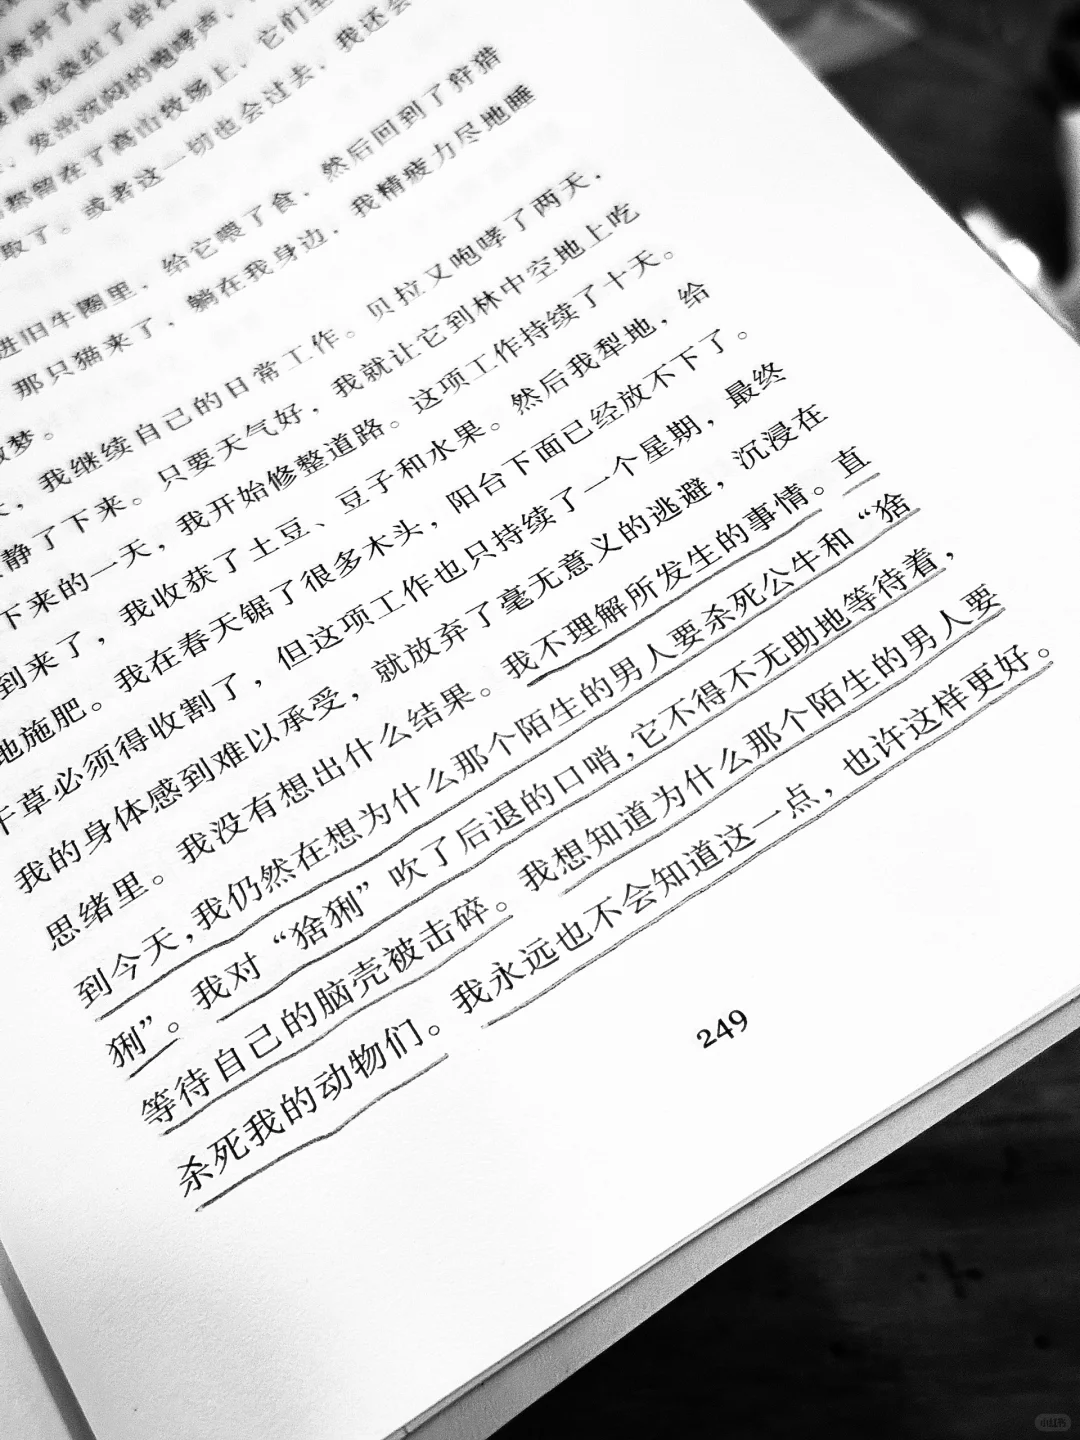 离开了
光染红了岩
，发出沉闷的咆哮声，
都留在了高山牧场上，它们至
取了。或者这一切也会过去，我还会
进旧牛圈里，给它喂了食，然后回到了狩猎
那只猫来了，躺在我身边，我精疲力尽地睡
梦。
，我继续自己的日常工作。贝拉又咆哮了两天，
静了下来。只要天气好，我就让它到林中空地上吃
下来的一天，我开始修整道路。这项工作持续了十天。
到来了，我收获了土豆、豆子和水果。然后我犁地，给
地施肥。我在春天锯了很多木头，阳台下面已经放不下了。
干草必须得收割了，但这项工作也只持续了一个星期，最终
我的身体感到难以承受，就放弃了毫无意义的逃避，沉浸在
思绪里。我没有想出什么结果。我不理解所发生的事情。直
到今天，我仍然在想为什么那个陌生的男人要杀死公牛和“猞
猁”。我对“猞猁”吹了后退的口哨，它不得不无助地等待着，
等待自己的脑壳被击碎。我想知道为什么那个陌生的男人要
杀死我的动物们。我永远也不会知道这一点，也许这样更好。
249
小红书